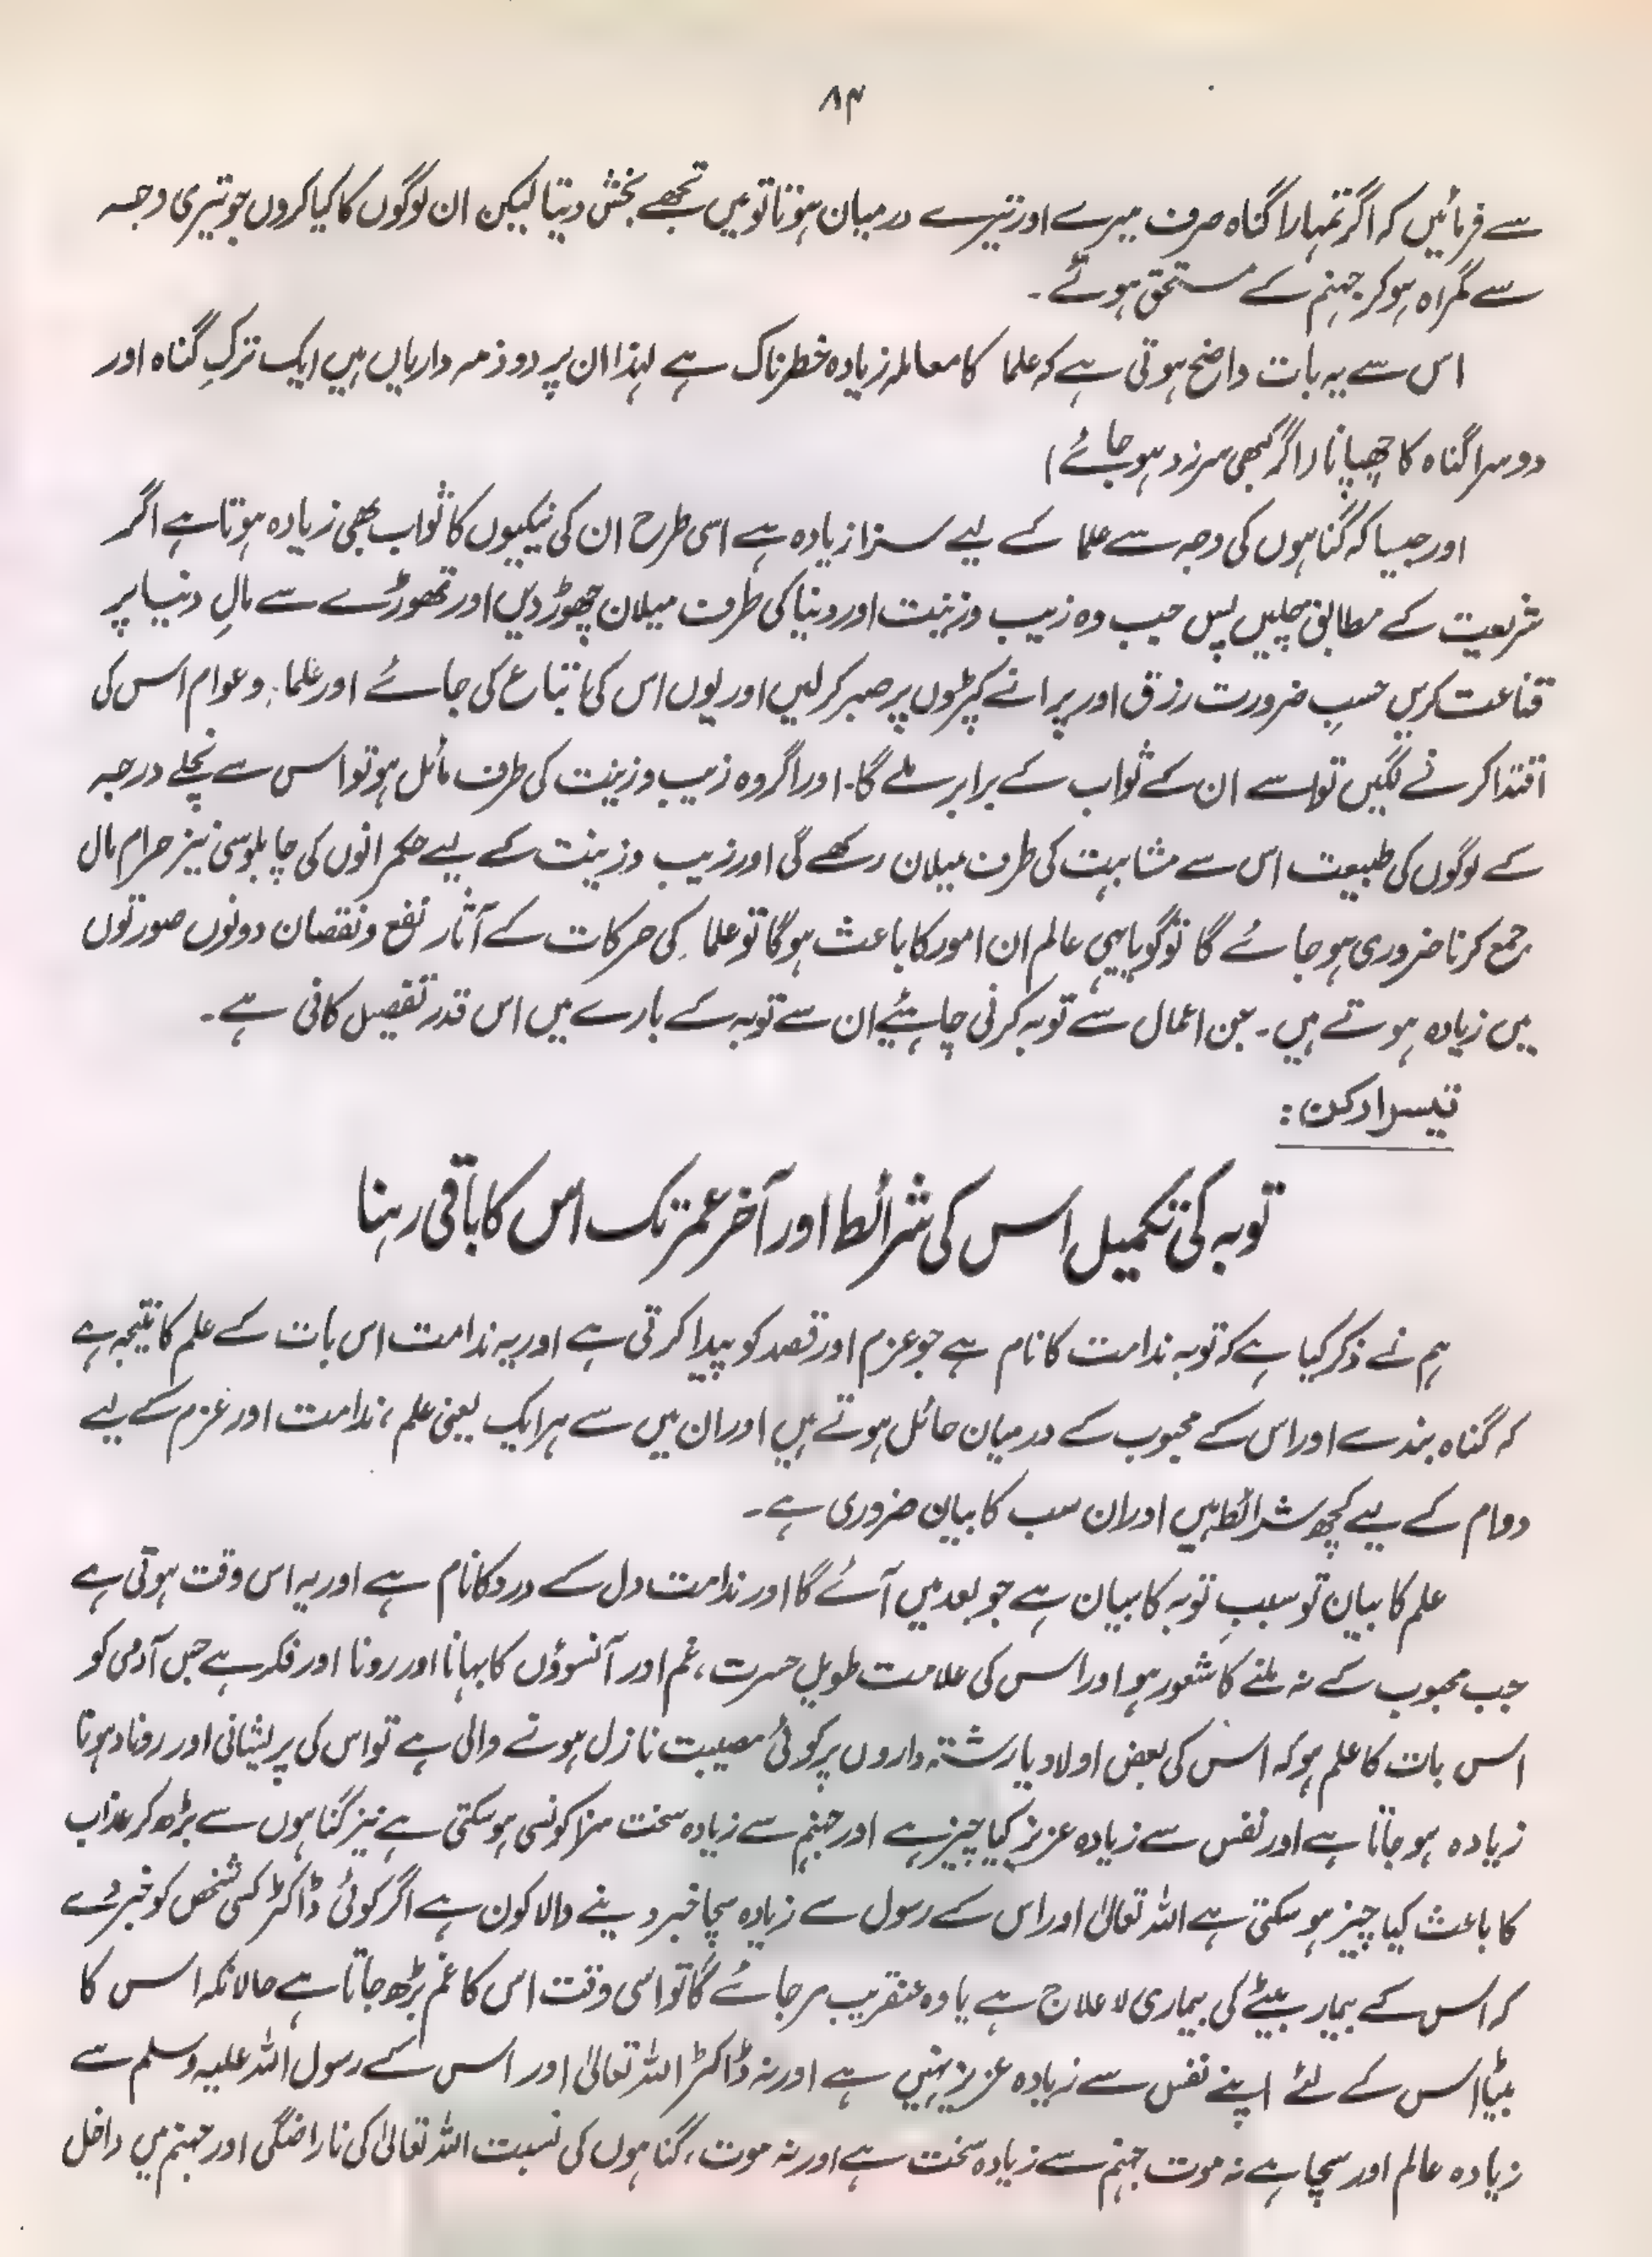 ۸۴
سے فرمائیں کہ اگر تمہارا گناہ صرف میرے اور تیرے درمیان ہوتا تو میں تجھے بخش دیتا لیکن ان لوگوں کا کیا کروں جو تیری وجہ
سے گمراہ ہو کر جہنم کے مستحق ہوئے ۔
اس سے یہ بات واضح ہوتی ہے کہ علما کا معاملہ زیادہ خطرناک ہے لہذا ان پر دو ذمہ داریاں ہیں ایک ترکِ گناہ اور
دوسرا گناہ کا چھپانا (اگر کبھی سرزد ہو جائے)
اور جیسا کہ گناہوں کی وجہ سے علما کے لیے سزا زیادہ ہے اسی طرح ان کی نیکیوں کا ثواب بھی زیادہ ہوتا ہے اگر
شریعت کے مطابق چلیں پس جب وہ زیب وزینت اور دنیا کی طرف میلان چھوڑ دیں اور تھوڑے سے مالِ دنیا پر
قناعت کریں حسبِ ضرورت رزق اور پرانے کپڑوں پر صبر کر لیں اور یوں اس کی اتباع کی جائے اور علماء و عوام اس کی
اقتدا کرنے لگیں تو اسے ان کے ثواب کے برابر ملے گا۔ اور اگر وہ زیب وزینت کی طرف مائل ہو تو اس سے نچلے درجہ
کے لوگوں کی طبیعت اس سے مشابہت کی طرف میلان رکھے گی اور زیب وزینت کے لیے حکمرانوں کی چاپلوسی نیز حرام مال
جمع کرنا ضروری ہو جائے گا تو گویا یہی عالم ان امور کا باعث ہو گا تو علما کی حرکات کے آثار نفع و نقصان دونوں صورتوں
میں زیادہ ہوتے ہیں۔ جن اعمال سے توبہ کرنی چاہئیے ان سے توبہ کے بارے میں اس قدر تفصیل کافی ہے۔
تیسرا رکن:
توبہ کی تکمیل اس کی شرائط اور آخر عمر تک اس کا باقی رہنا
ہم نے ذکر کیا ہے کہ توبہ ندامت کا نام ہے جو عزم اور قصد کو پیدا کرتی ہے اور یہ ندامت اس بات کے علم کا نتیجہ ہے
کہ گناہ بندے اور اس کے محبوب کے درمیان حائل ہوتے ہیں اور ان میں سے ہر ایک یعنی علم، ندامت اور عزم کے لیے
دوام کے لیے کچھ شرائط ہیں اور ان سب کا بیان ضروری ہے۔
علم کا بیان تو سببِ توبہ کا بیان ہے جو بعد میں آئے گا اور ندامت دل کے درد کا نام ہے اور یہ اس وقت ہوتی ہے
جب محبوب کے نہ ملنے کا شعور ہو اور اس کی علامت طویل حسرت، غم اور آنسوؤں کا بہانا اور رونا اور فکر ہے جس آدمی کو
اس بات کا علم ہو کہ اس کی بعض اولاد یا رشتہ داروں پر کوئی مصیبت نازل ہونے والی ہے تو اس کی پریشانی اور رونا دہونا
زیادہ ہو جاتا ہے اور نفس سے زیادہ عزیز کیا چیز ہے اور جہنم سے زیادہ سخت سزا کونسی ہو سکتی ہے نیز گناہوں سے بڑھ کر عذاب
کا باعث کیا چیز ہو سکتی ہے اللہ تعالیٰ اور اس کے رسول سے زیادہ سچا خبر دینے والا کون ہے اگر کوئی ڈاکٹر کسی شخص کو خبر دے
کہ اس کے بیمار بیٹے کی بیماری لا علاج ہے یا وہ عنقریب مر جائے گا تو اسی وقت اس کا غم بڑھ جاتا ہے حالانکہ اس کا
بیٹا اس کے لئے اپنے نفس سے زیادہ عزیز نہیں ہے اور نہ ڈاکٹر اللہ تعالیٰ اور اس کے رسول اللہ علیہ وسلم سے
زیادہ عالم اور سچا ہے نہ موت جہنم سے زیادہ سخت ہے اور نہ موت، گناہوں کی نسبت اللہ تعالیٰ کی ناراضگی اور جہنم میں داخل